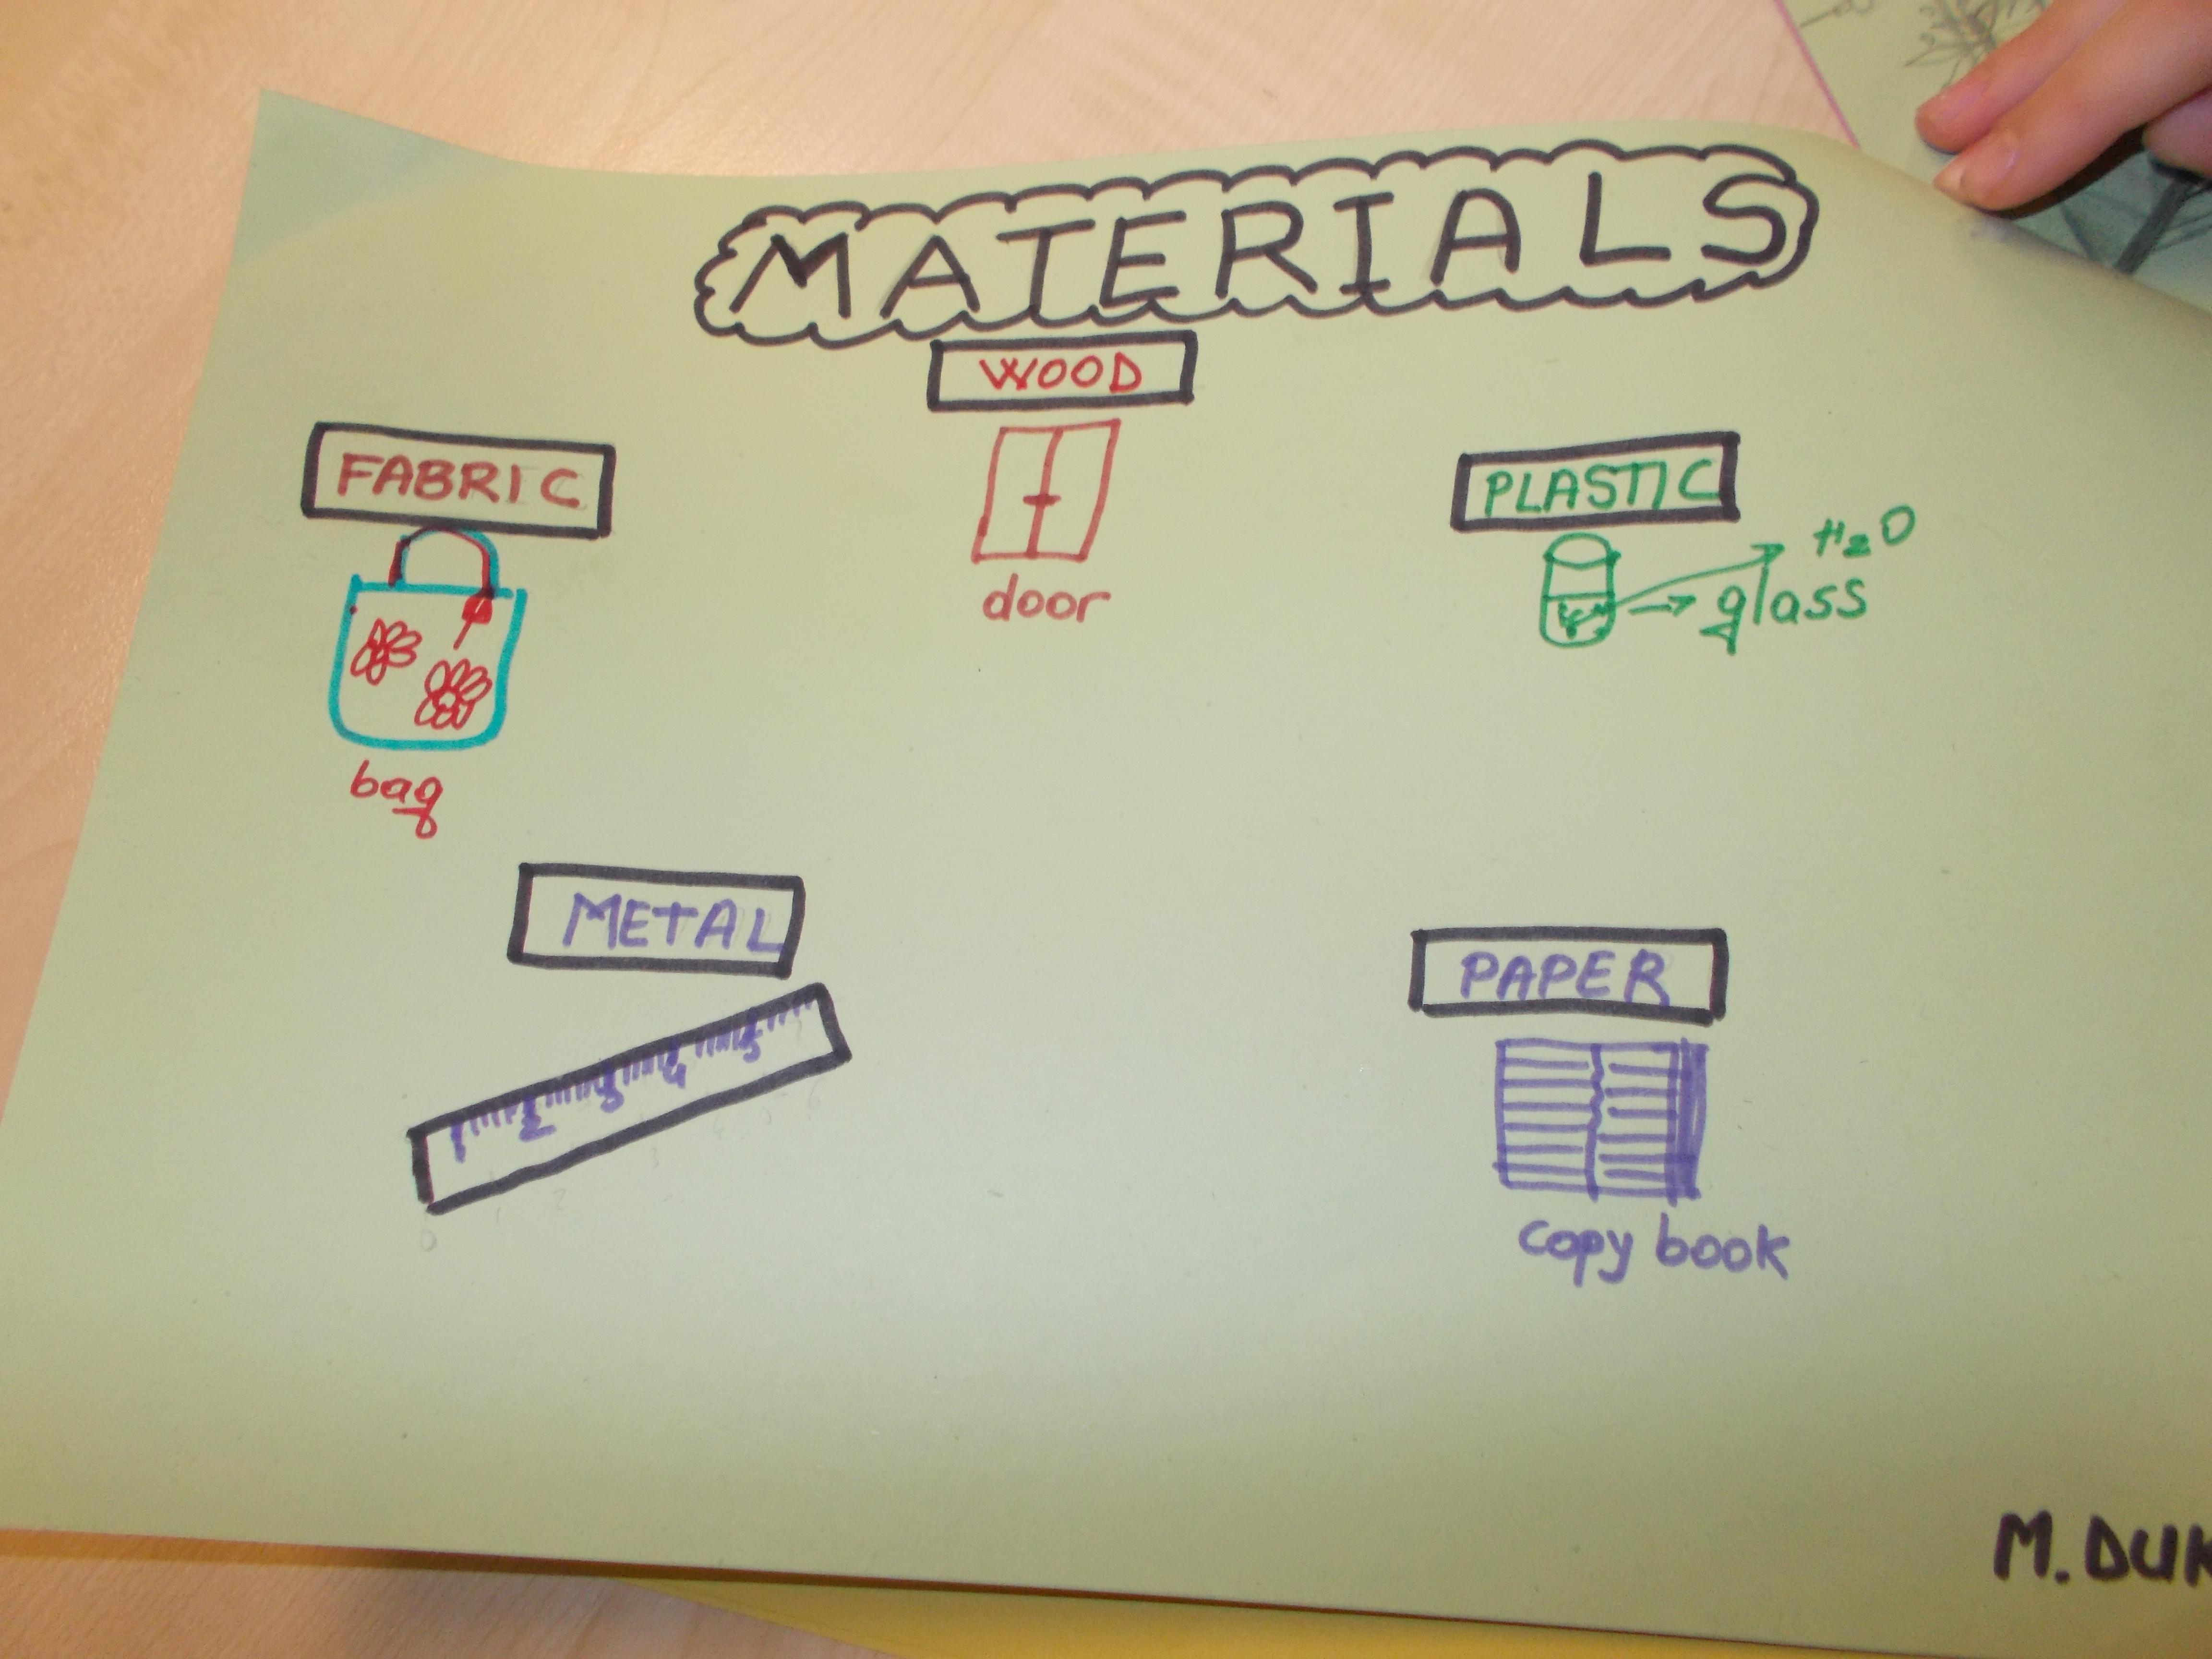 MATERIALS
WOOD
door
FABRIC
bag
PLASTIC
H2O
glass
METAL
1 2 3 4 5
PAPER
copy book
M. DUK